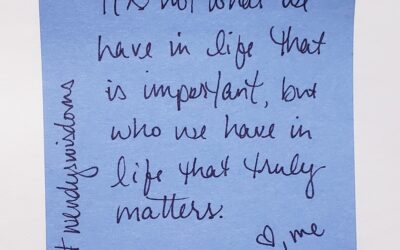 It's not what we
have in life that
is important, but
who we have in
life that truly
matters.
♡, me
#wendyswisdoms